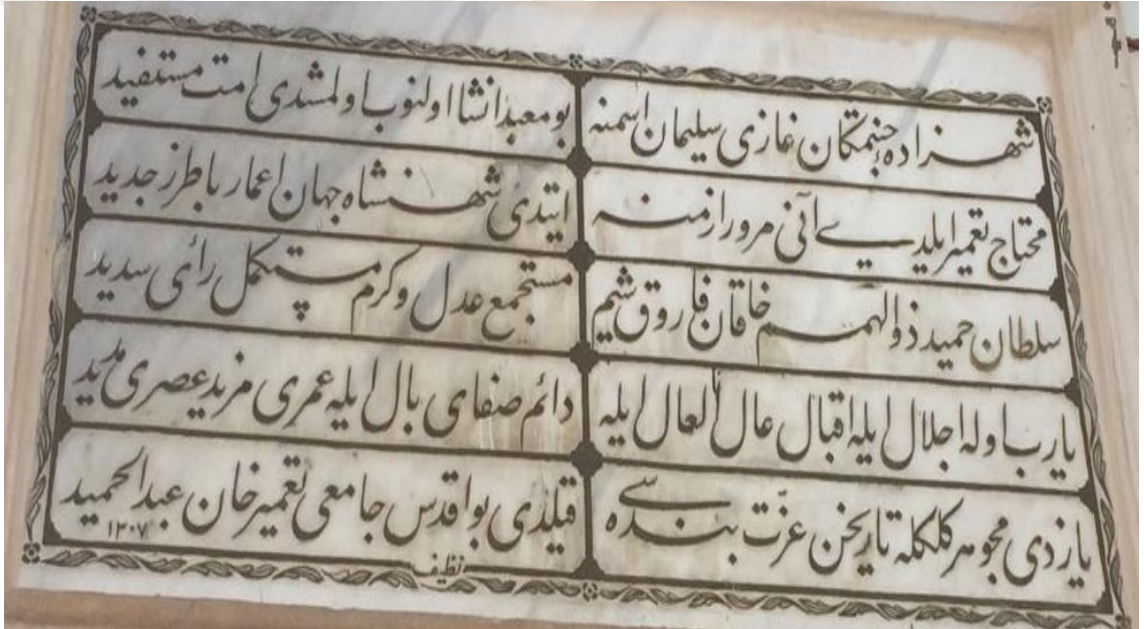 شهزاده جنتمكان غازى سليمان اسمنه
بو معبد انشا اولنوب اولمشدى امت مستفيد
محتاج تعمير ايلديسه آنى مرور ازمنه
ايتدى شهنشاه جهان اعمار با طرز جديد
سلطان حميد ذوالهمم خاقان فاروق شيم
مستجمع عدل وكرم مستكمل رأى سديد
يارب اوله اجلال ايله اقبال عال العال ايله
دائم صفاى بال ايله عمرى مزيد عصرى مديد
يازدى مجوهر كلكله تاريخن عزت بنده سى
قيلدى بو اقدس جامعى تعمير خان عبدالحميد
١٣٠٧
نظيف